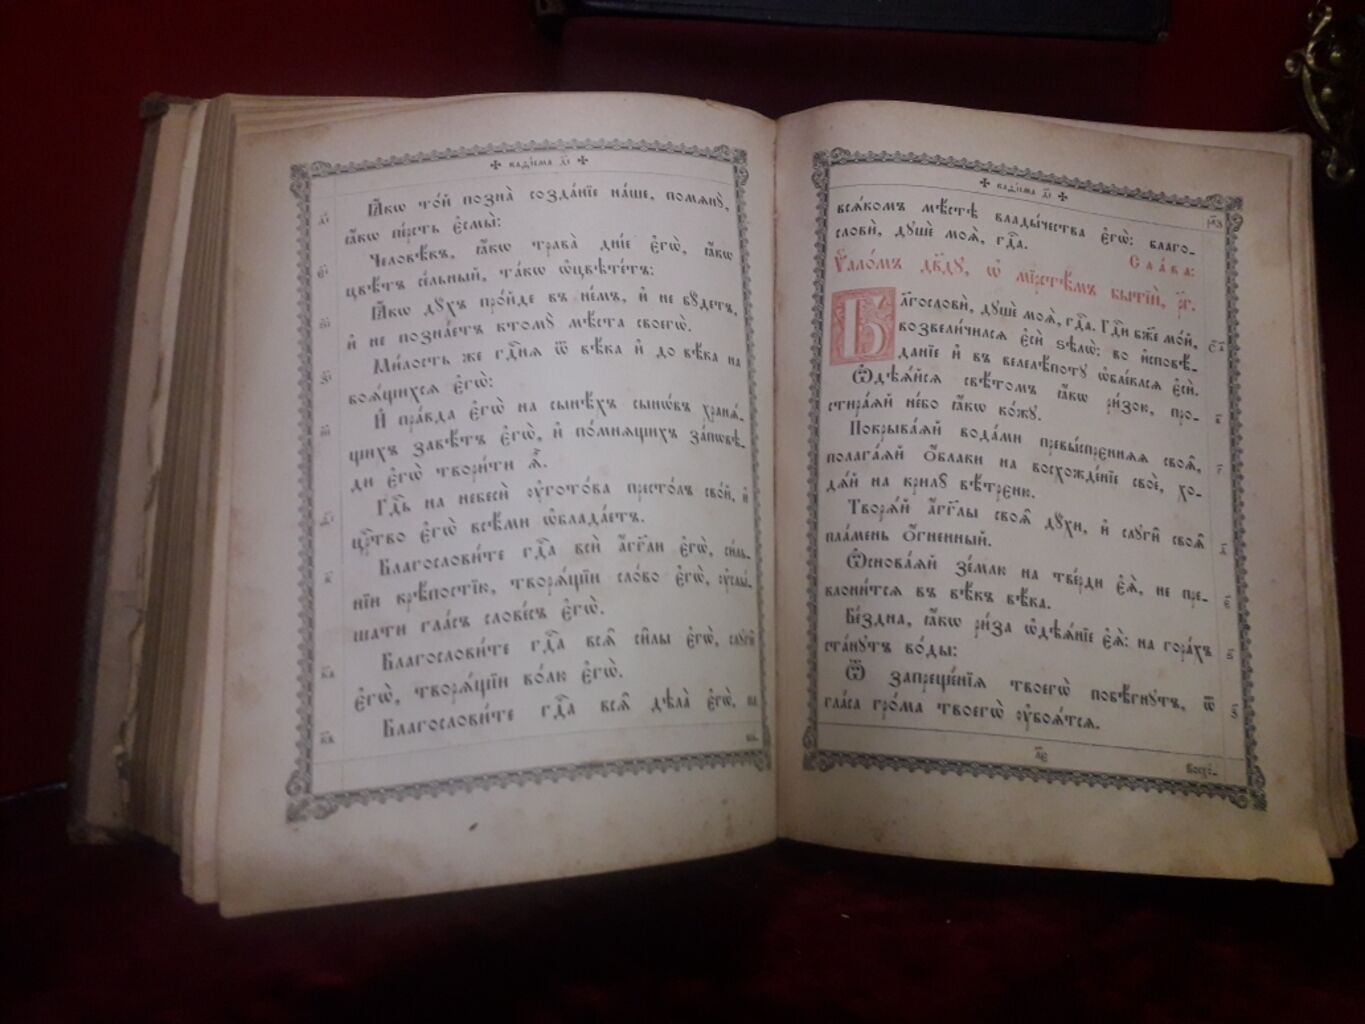 ✢ каѳі́сма д҃і ✢
д҃і
Ꙗ҆́кѡ то́й позна̀ созда́нїе на́ше, помѧнꙋ̀,
ꙗ҆́кѡ пе́рсть є҆смы̀:
є҃і
Человѣ́къ, ꙗ҆́кѡ трава̀ дні́е є҆гѡ̀, ꙗ҆́кѡ
цвѣ́тъ се́льный, та́кѡ ѡ҆цвѣте́тъ:
ѕ҃і
Ꙗ҆́кѡ дꙋ́хъ про́йде въ не́мъ, и҆ не бꙋ́детъ,
и҆ не позна́етъ ктомꙋ̀ мѣ́ста своегѡ̀.
з҃і
Ми́лость же гдⷭ҇нѧ ѿ вѣ́ка и҆ до вѣ́ка на
боѧ́щихсѧ є҆гѡ̀:
и҃і
И҆ пра́вда є҆гѡ̀ на сынѣ́хъ сынѡ́въ хранѧ́-
щихъ завѣ́тъ є҆гѡ̀, и҆ по́мнѧщихъ за́пѡвѣ-
ди є҆гѡ̀ твори́ти ѧ҆̀.
ѳ҃і
Гдⷭ҇ь на небесѝ ᲂу҆гото́ва престо́лъ сво́й, и҆
црⷭ҇тво є҆гѡ̀ всѣ́ми ѡ҆блада́етъ.
к҃
Благослови́те гдⷭ҇а всѝ а҆́гг҃ли є҆гѡ̀, си́ль-
нїи крѣ́постїю, творѧ́щїи сло́во є҆гѡ̀, ᲂу҆слы́-
шати гла́съ слове́съ є҆гѡ̀.
к҃а
Благослови́те гдⷭ҇а всѧ̑ си̑лы є҆гѡ̀, слꙋги̑
є҆гѡ̀, творѧ́щїи во́лю є҆гѡ̀.
к҃в
Благослови́те гдⷭ҇а всѧ̑ дѣла̀ є҆гѡ̀, на
✢ каѳі́сма д҃і ✢
всѧ́комъ мѣ́стѣ влады́чества є҆гѡ̀: благо-
словѝ, дꙋшѐ моѧ̀, гдⷭ҇а.
Сла́ва:
Ѱало́мъ дв҃дꙋ, ѡ҆ мірстѣ́мъ бытїѝ, р҃г.
Благословѝ, дꙋшѐ моѧ̀, гдⷭ҇а. Гдⷭ҇и бж҃е мо́й,
возвели́чилсѧ є҆сѝ ѕѣлѡ̀: во и҆сповѣ́-
данїе и҆ въ велелѣ́потꙋ ѡ҆бле́клсѧ є҆сѝ.
Ѡ҆дѣѧ́йсѧ свѣ́томъ ꙗ҆́кѡ ри́зою, про-
стира́ѧй не́бо ꙗ҆́кѡ ко́жꙋ.
г҃
Покрыва́ѧй вода́ми превы́спреннѧѧ своѧ̑,
полага́ѧй ѻ҆́блаки на восхожде́нїе своѐ, хо-
дѧ́й на крилꙋ̀ вѣ́треню.
д҃
Творѧ́й а҆́гг҃лы своѧ̑ дꙋ́хи, и҆ слꙋги̑ своѧ̑
пла́мень ѻ҆́гненный.
є҃
Ѡ҆снова́ѧй зе́млю на тве́рди є҆ѧ̀, не пре-
клони́тсѧ въ вѣ́къ вѣ́ка.
ѕ҃
Бе́здна, ꙗ҆́кѡ ри́за ѡ҆дѣѧ́нїе є҆ѧ̀: на гора́хъ
ста́нꙋтъ во́ды:
з҃
Ѿ запреще́нїѧ твоегѡ̀ побѣ́гнꙋтъ, ѿ
гла́са гро́ма твоегѡ̀ ᲂу҆боѧ́тсѧ.
восхо́-